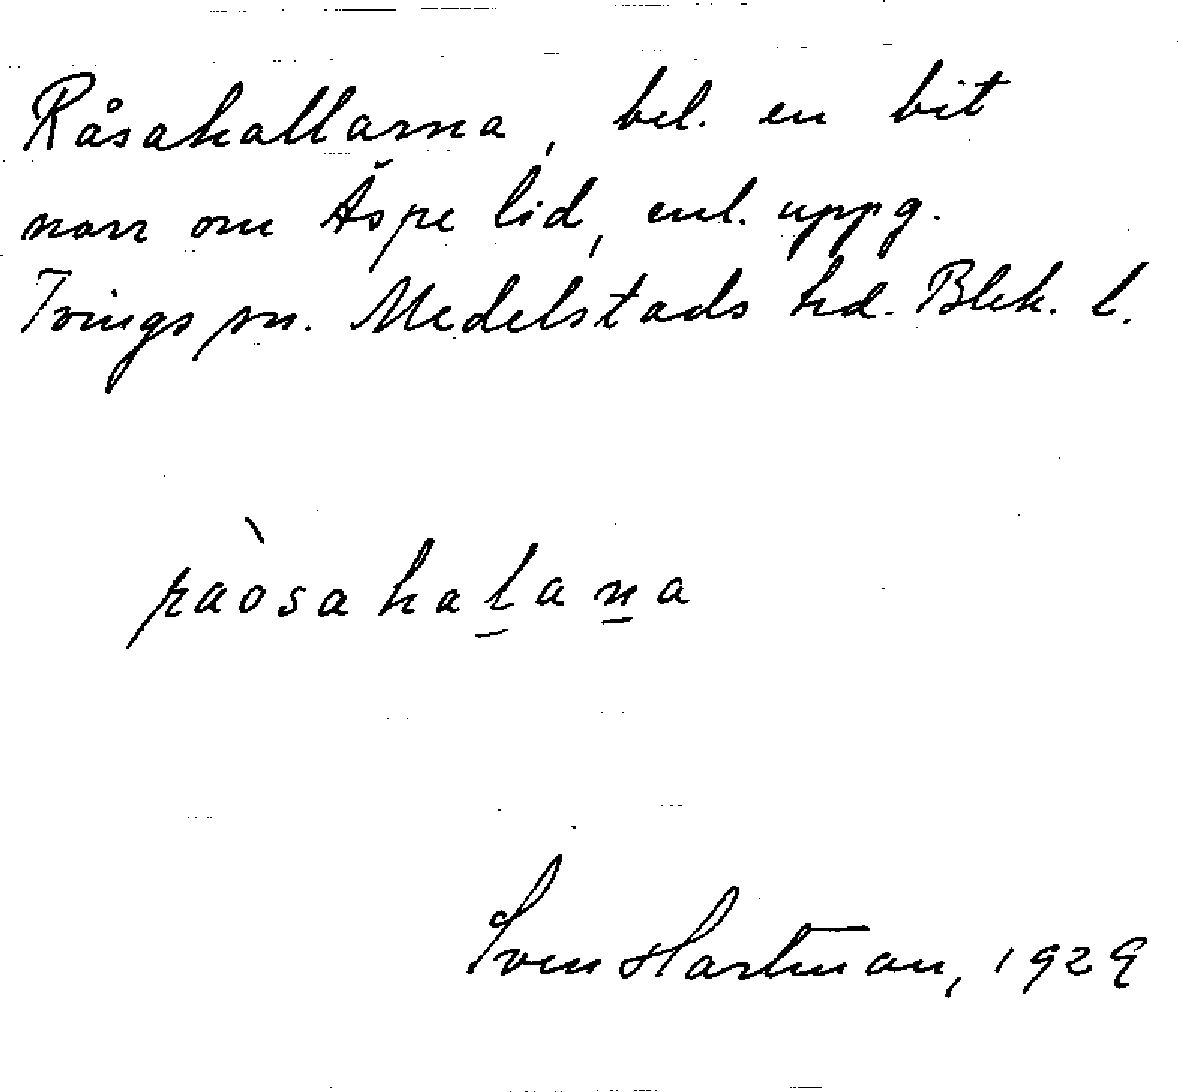 Råsahallarna, bel. en bit
norr om Äspe lid, enl. uppg.
Tvings sn. Medelstads hd. Blek. l.
raòsahalana
Sven Hartman, 1929